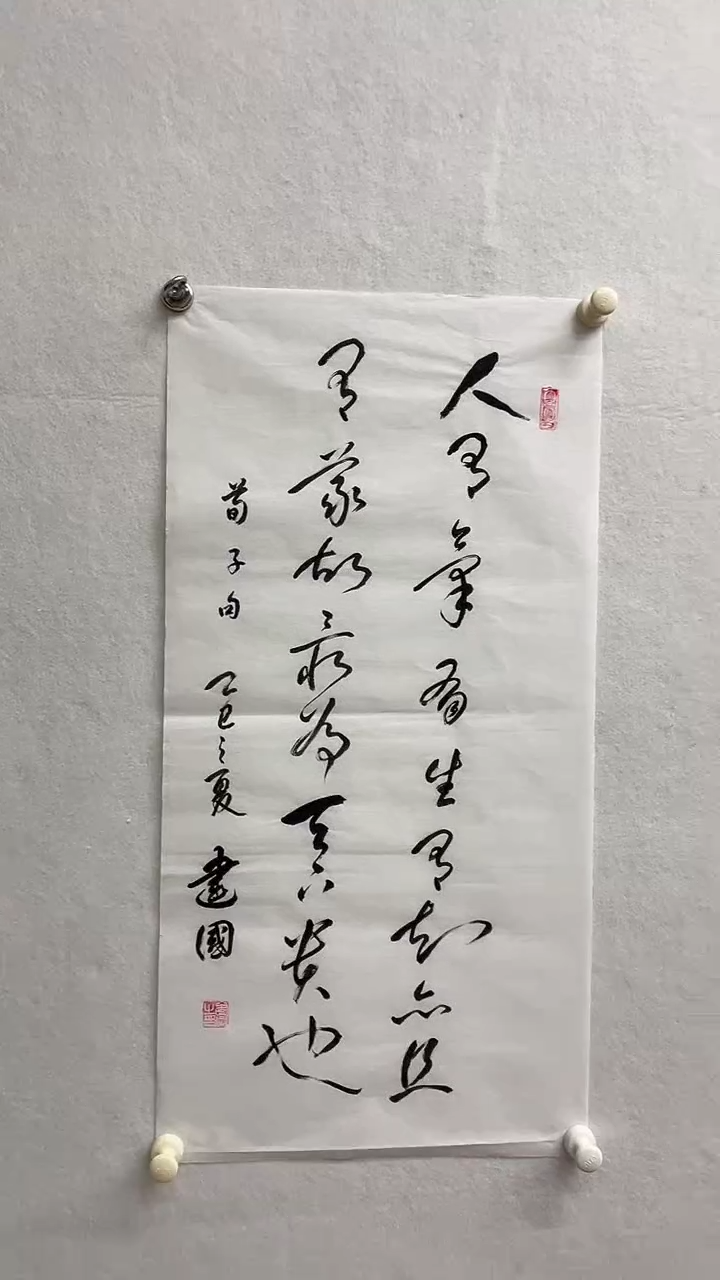 人有氣有生有知亦且
有義故最為天下貴也
荀子句 乙巳之夏 建國